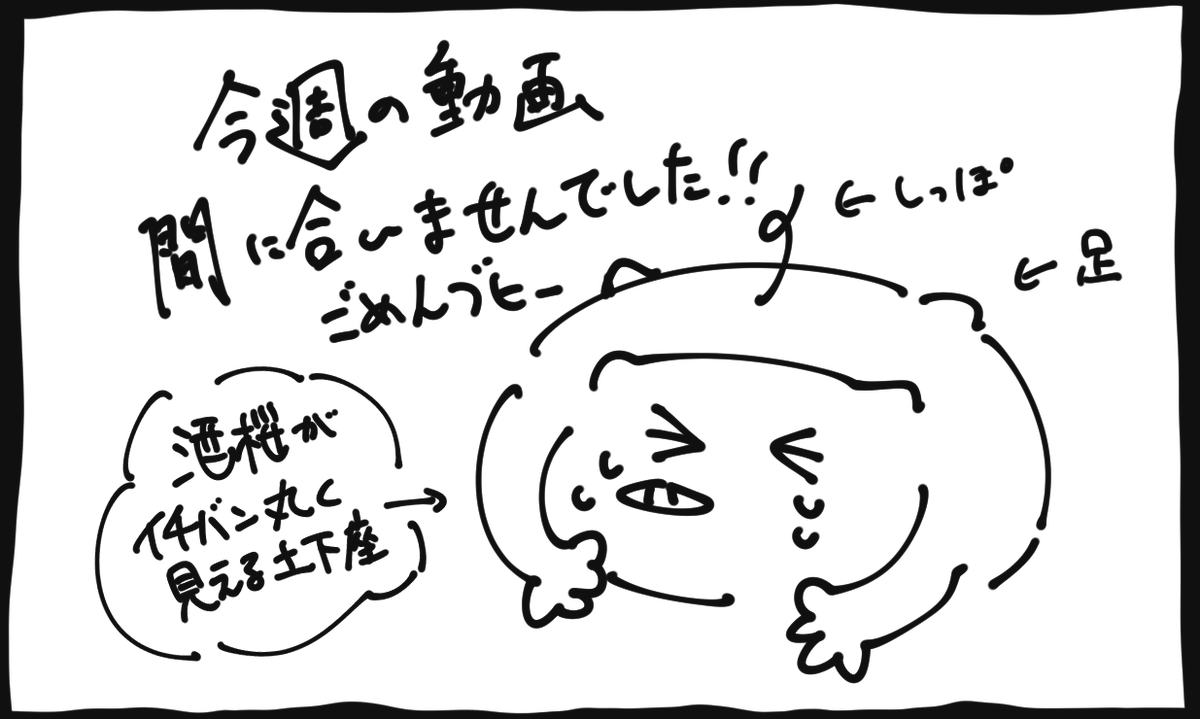 今週の動画
間に合いませんでした!!
ごめんブヒー
←しっぽ
←足
酒桜が
イチバン丸く
見える土下座
→